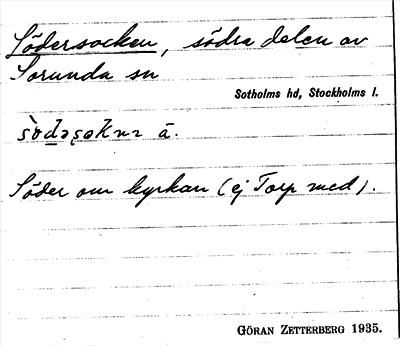 Södersocken, södra delen av
Sorunda sn
Sotholms hd, Stockholms l.
ā.
Söder om kyrkan (ej Torp med).
GÖRAN ZETTERBERG 1935.